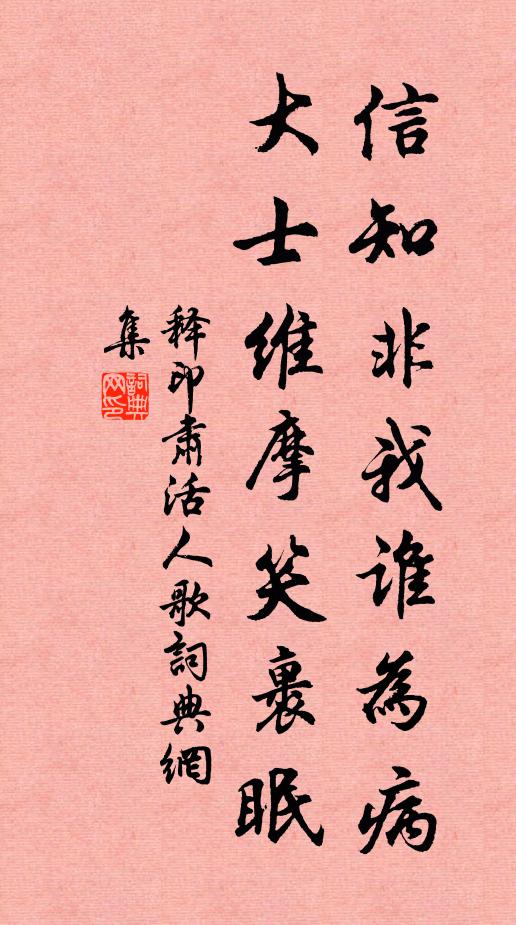 信知非我誰為病
大士維摩笑裏眠
釋印肅活人歌詞典網
集
詞典網印